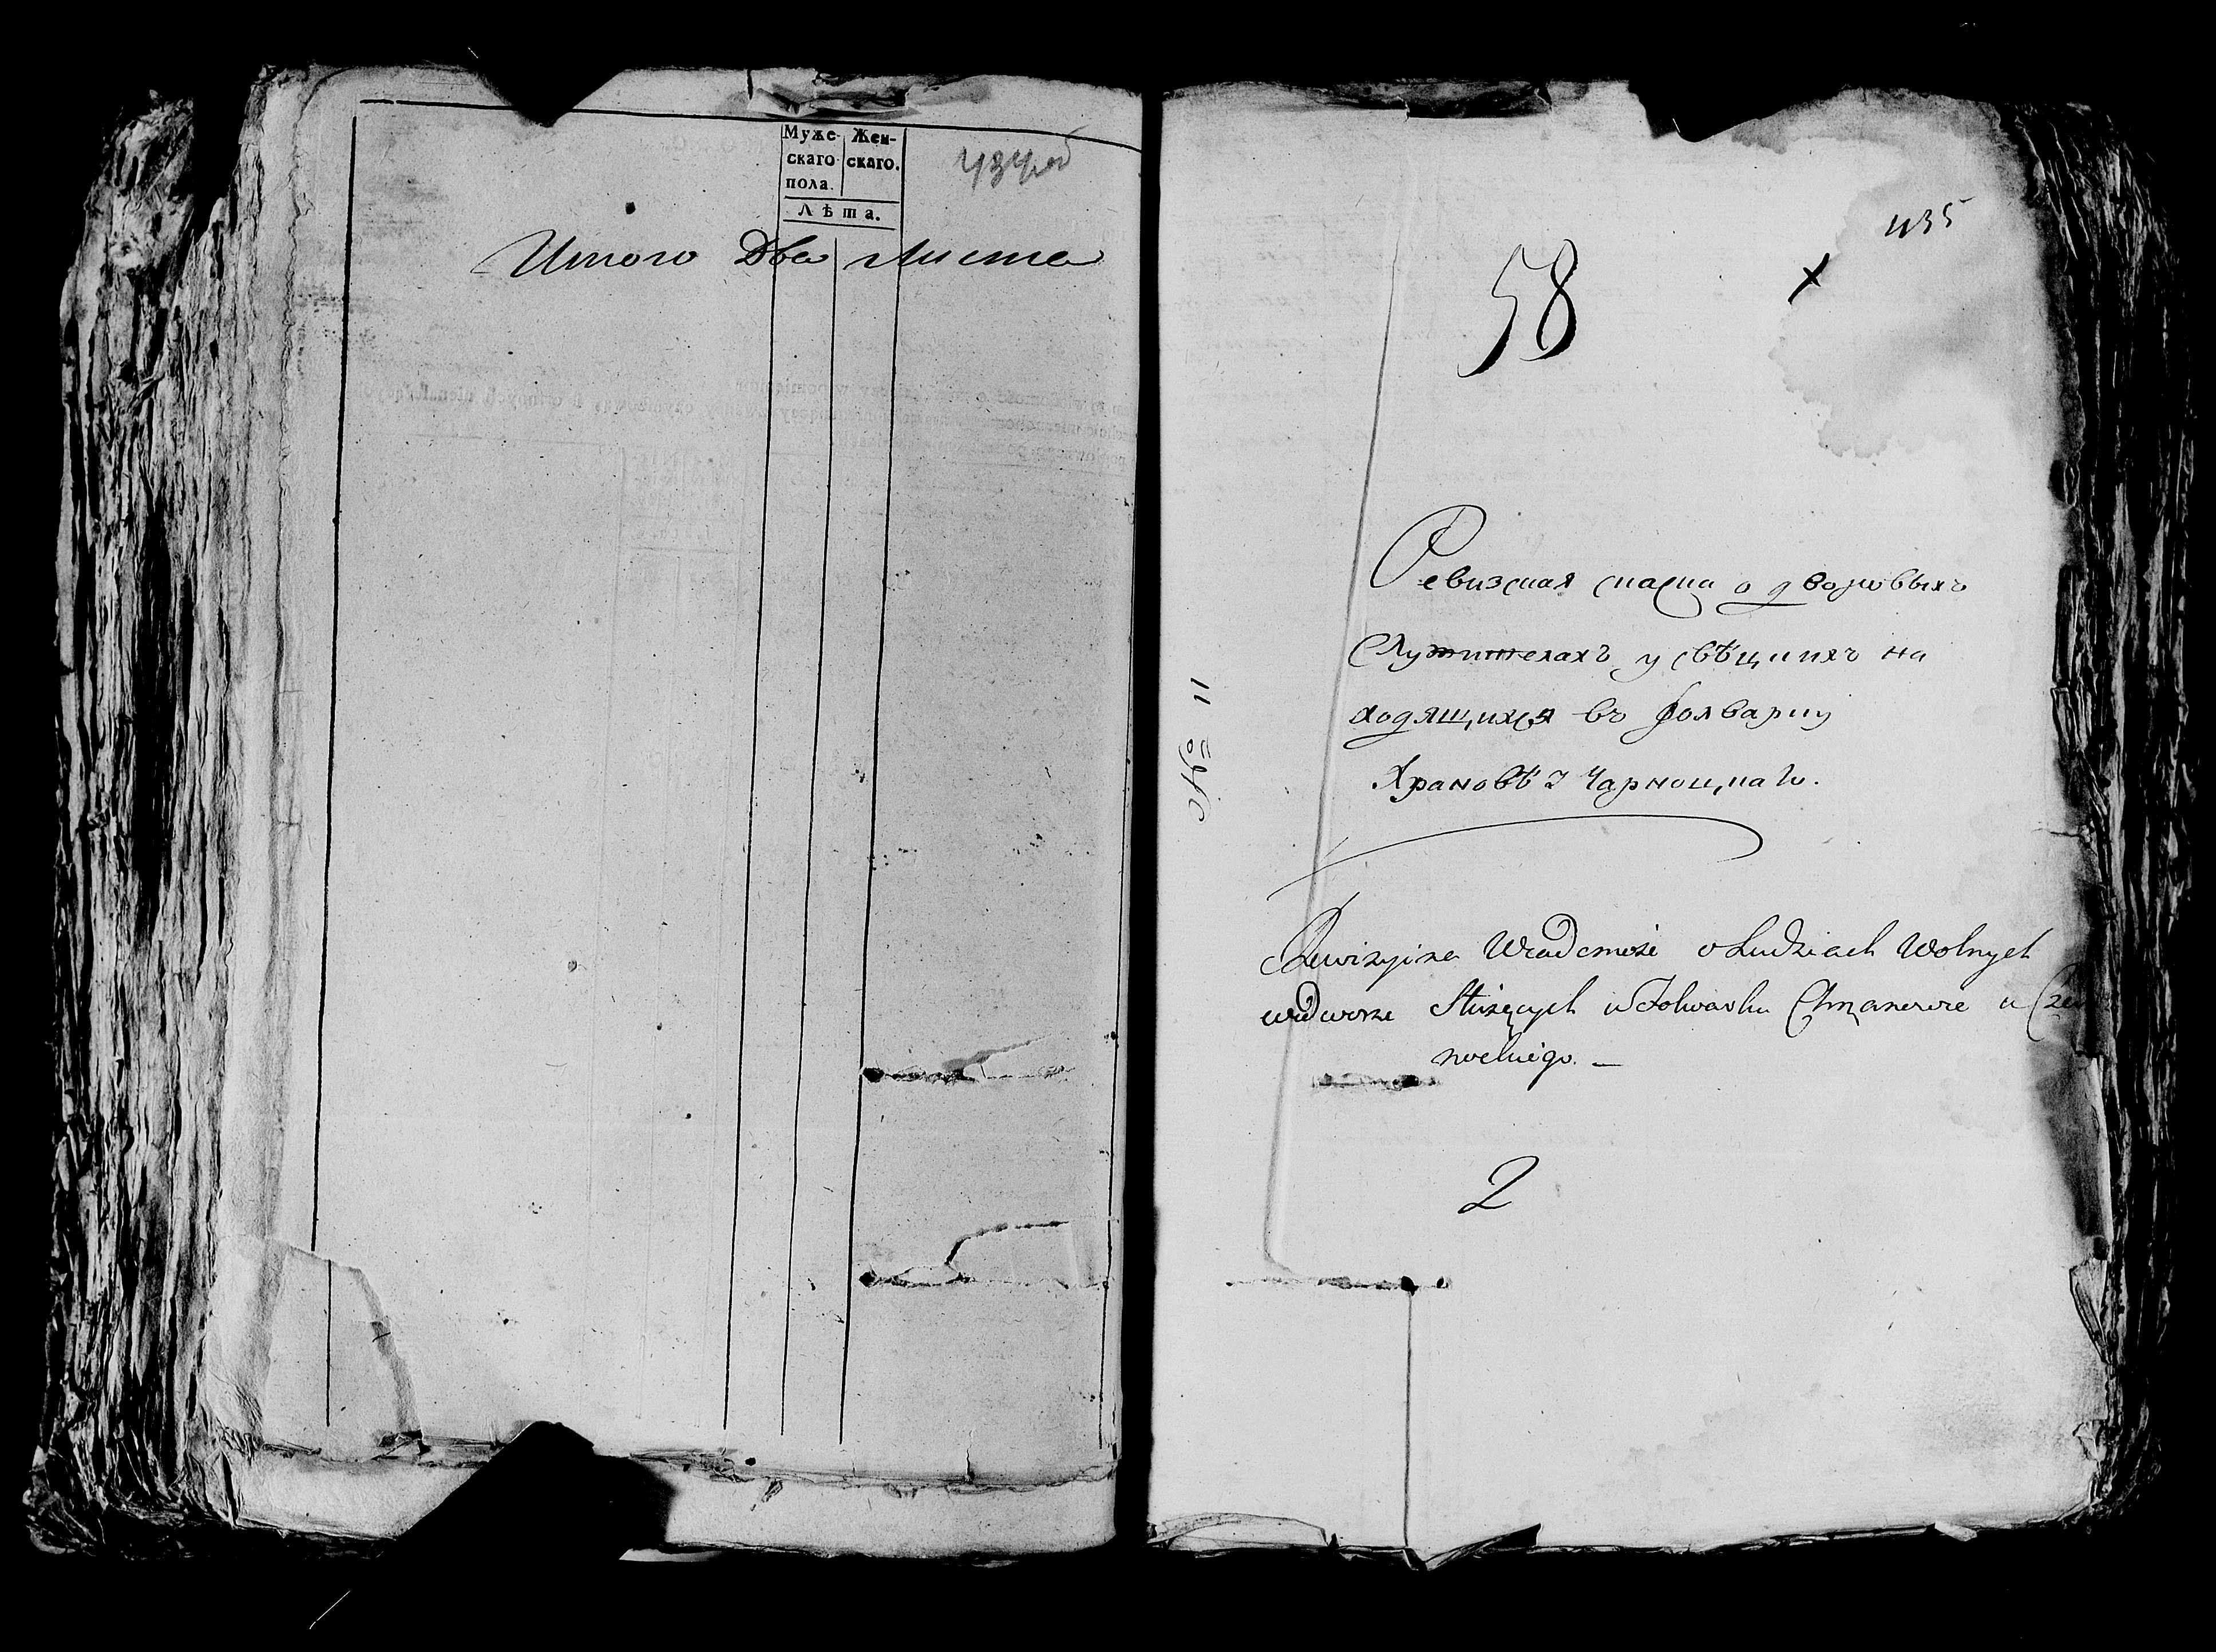 Муже-
скаго
пола.
Жен-
скаго.
Лѣта.
434об
Итого Два листа
435
58
Ревизская сказка о дворовыхъ
Служителахъ у свѣцкихъ на
ходящихся въ фолварку
Храновѣ Чарноцкаго.
№ 11
Rewizyina Wiadomość o Ludziach Wolnych
wedworze Służących w Folwarku u Czar
nockiego. —
2